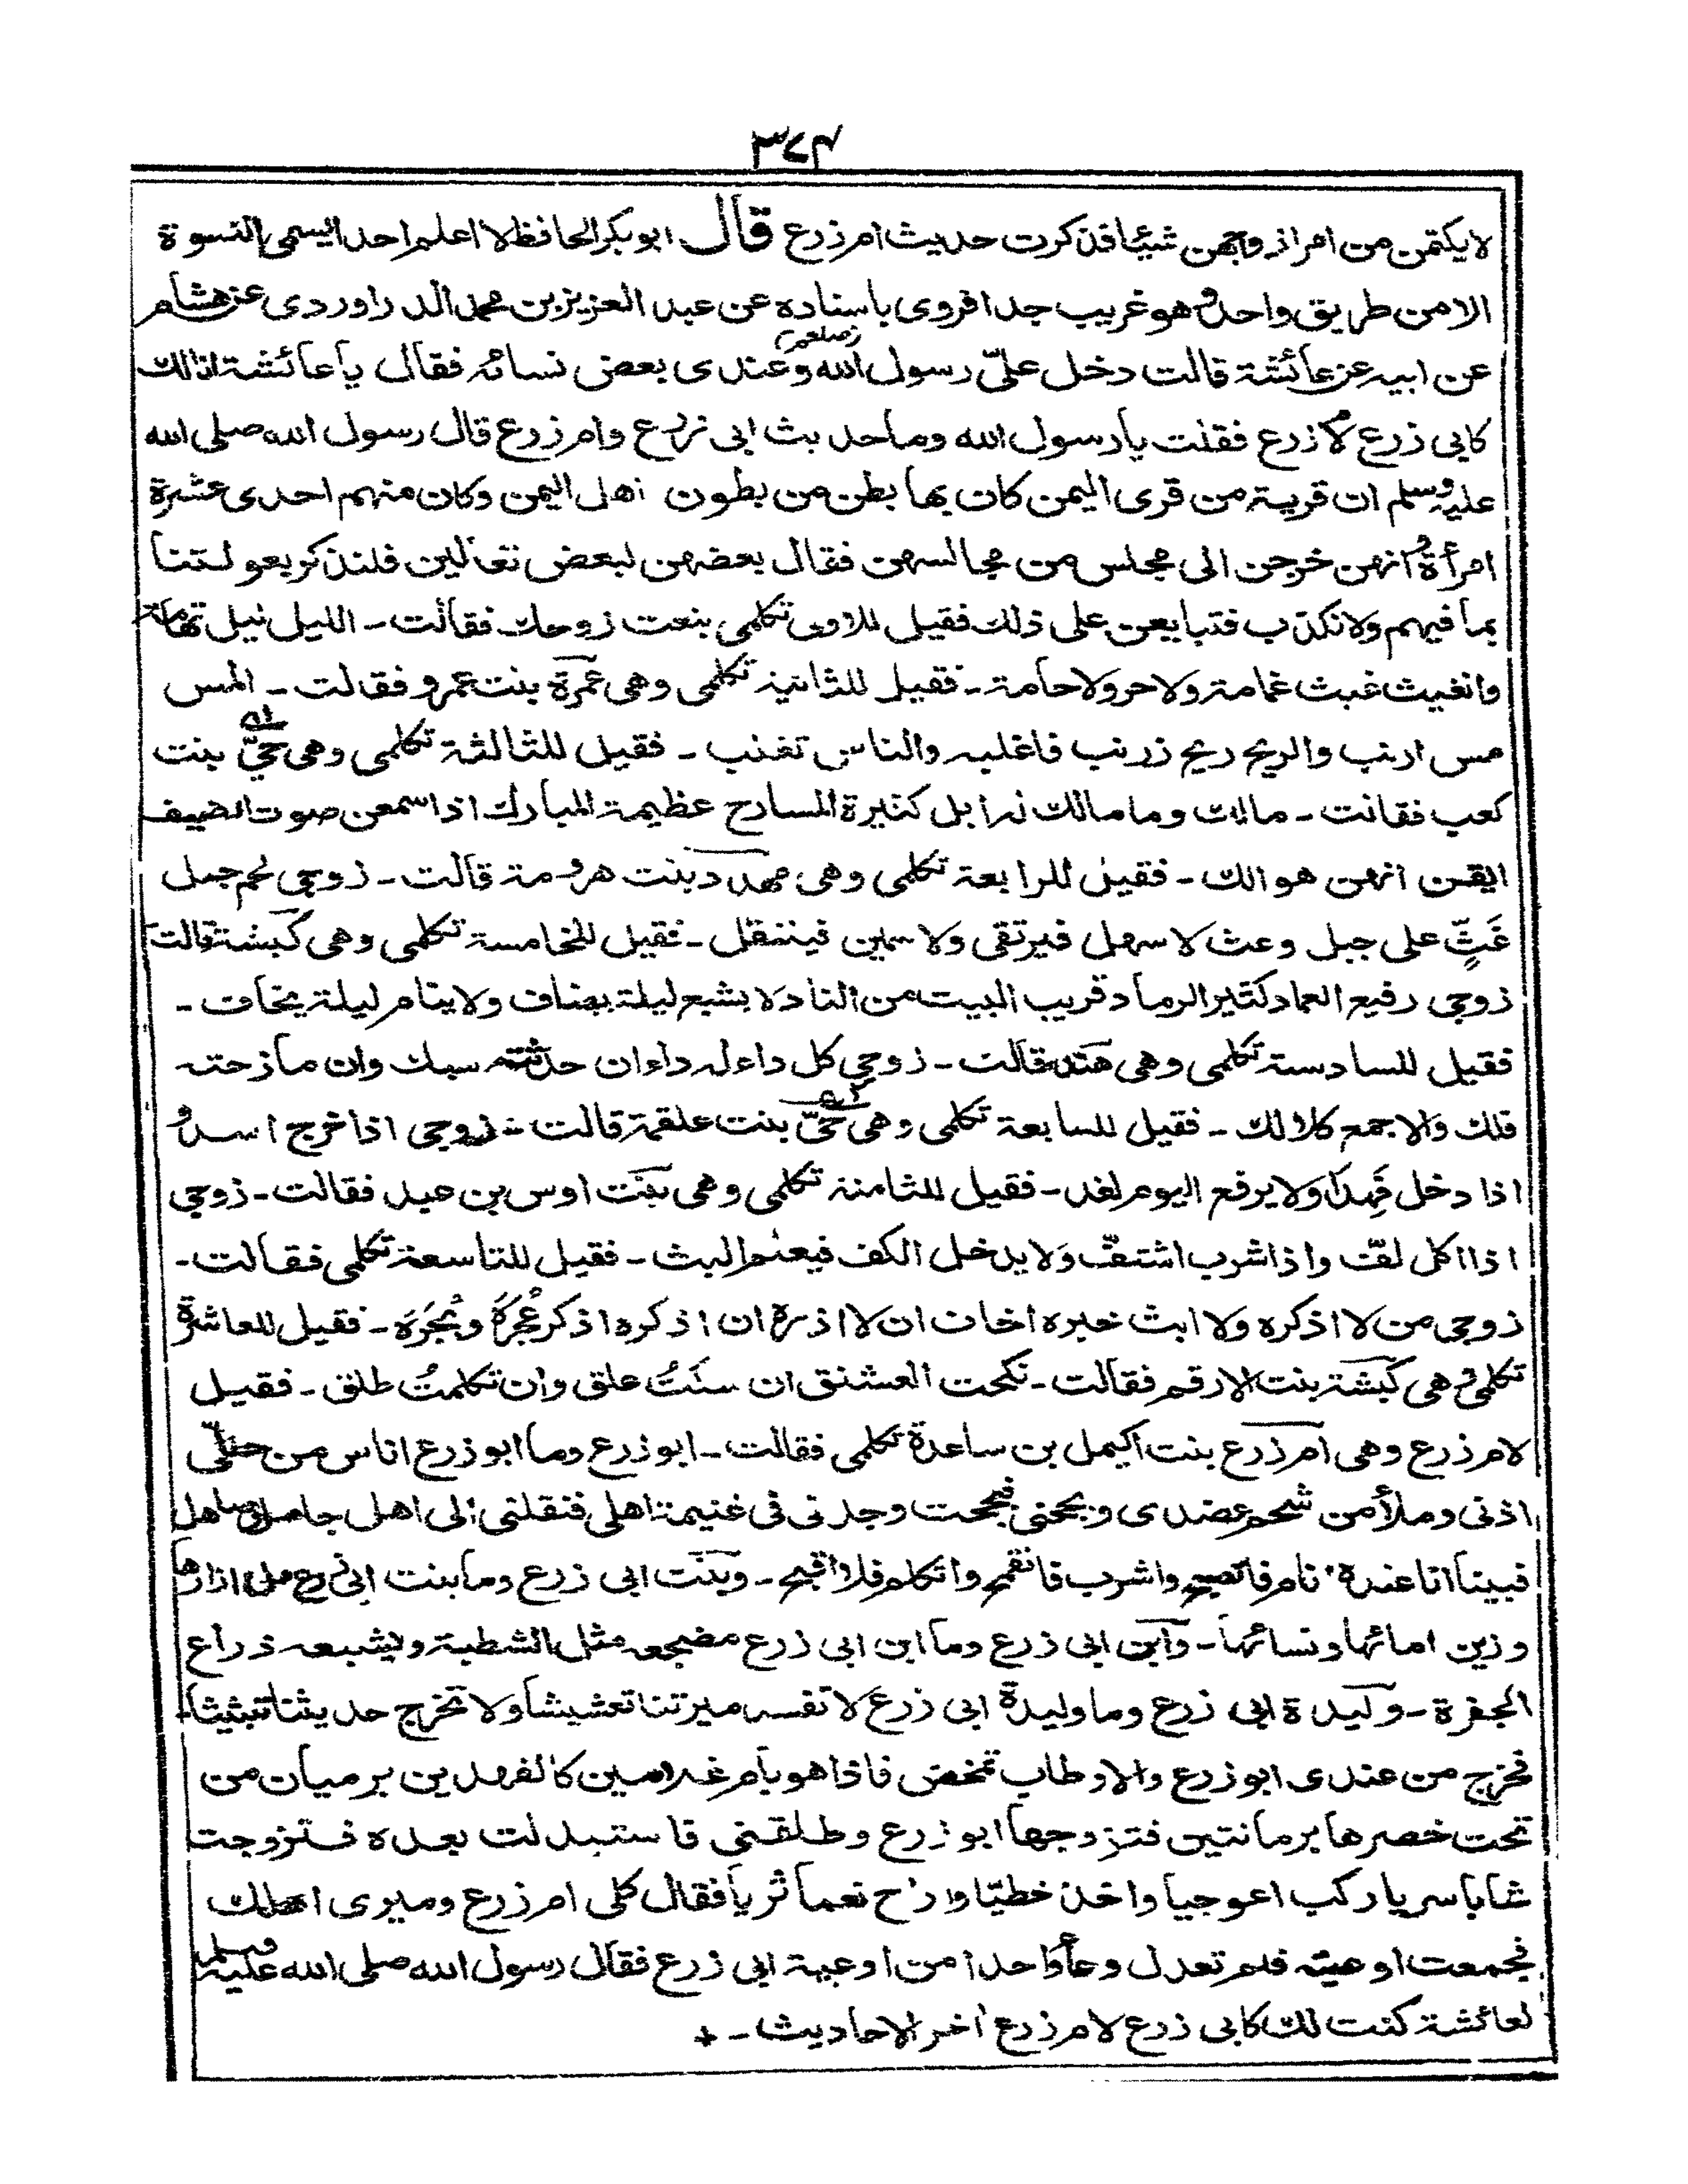 ٣٧٣
لا يكتمن من امر ازواجهن شيئا فذكرت حديث ام زرع قال ابو بكر الحافظ لا اعلم احدا يسمى النسوة
الا من طريق واحد وهو غريب جدا فروى باسناده عن عبد العزيز بن محمد الدراوردى عن هشام
عن ابيه عن عائشة قالت دخل علىّ رسول الله صلعم وعندى بعض نسائه فقال يا عائشة انا لك
كابى زرع لام زرع فقلت يا رسول الله وما حديث ابى زرع وام زرع قال رسول الله صلى الله
عليه وسلم ان قرية من قرى اليمن كان بها بطن من بطون اهل اليمن وكان منهم احدى عشرة
امرأة وانهن خرجن الى مجلس من مجالسهن فقال بعضهن لبعض تعالين فلنذكر بعولتنا
بما فيهم ولا نكذب فتبايعن على ذلك فقيل للاولى تكلمى بنعت زوجك فقالت ـ الليل ليل تهامة
والغيث غيث غمامة ولا حر ولا خامة ـ فقيل للثانية تكلمى وهى عمرة بنت عمرو فقالت ـ المس
مس ارنب والريح ريح زرنب فاغلبه والناس تغلب ـ فقيل للثالثة تكلمى وهى حبيّ بنت
كعب فقالت ـ مالك وما مالك له ابل كثيرة المسارح عظيمة المبارك اذا سمعن صوت الضيف
ايقن انهن هوالك ـ فقيل للرابعة تكلمى وهى مهدد بنت هرومة قالت ـ زوجى لحم جمل
غَثٍّ على جبل وعث لا سهل فيرتقى ولا سمين فينتقل ـ فقيل للخامسة تكلمى وهى كبشة قالت
زوجى رفيع العماد كثير الرماد قريب البيت من الناد لا يشبع ليلة يضاف ولا ينام ليلة يخاف ـ
فقيل للسادسة تكلمى وهى هند قالت ـ زوجى كل داء له داء ان حدثته سبك وان مازحته
فلك والا جمع كلا لك ـ فقيل للسابعة تكلمى وهى حيّ بنت علقمة قالت ـ زوجى اذا خرج اسد و
اذا دخل فَهِدَ ولا يرفع اليوم لغد ـ فقيل للثامنة تكلمى وهى بنت اوس بن عبد فقالت ـ زوجى
اذا اكل لفّ واذا شرب اشتفّ ولا يدخل الكف فيعلم البث ـ فقيل للتاسعة تكلمى فقالت ـ
زوجى من لا اذكره ولا ابث خبره اخاف ان لا اذره ان اذكره اذكر عُجَرَهُ وبُجَرَهُ ـ فقيل للعاشرة
تكلمى وهى كبشة بنت الارقم فقالت ـ نكحت العشنق ان سكتُ علق وان تكلمتُ طلق ـ فقيل
لام زرع وهى ام زرع بنت اكيمل بن ساعدة تكلمى فقالت ـ ابو زرع وما ابو زرع اناس من حلىّ
اذنى وملأ من شحم عضدى وبجحنى فبجحت وجدنى فى غنيمة اهلى فنقلنى الى اهل جامل وصاهل
فبينا انا عنده انام فاتصبح واشرب فاتقمح واتكلم فلا اقبح ـ وبنت ابى زرع وما بنت ابى زرع ملء ازارها
وزين امائها ونسائها ـ وابن ابى زرع وما ابن ابى زرع مضجعه مثل الشطبة ويشبعه ذراع
الجفرة ـ وليدة ابى زرع وما وليدة ابى زرع لا تفسد ميرتنا تعشيشا ولا تخرج حديثنا تبثيثا ـ
فخرج من عندى ابو زرع والاوطاب تمخض فاذا هو بام غلامين كالفهدين يرميان من
تحت خصرها برمانتين فتزوجها ابو زرع وطلقنى فاستبدلت بعده فتزوجت
شابا سريا ركب اعوجيا واخذ خطيّا واراح نعما ثريا فقال كلى ام زرع وميرى اهلك
فجمعت اوعيته فلم تعدل وعاء واحدا من اوعية ابى زرع فقال رسول الله صلى الله عليه وسلم
لعائشة كنت لك كابى زرع لام زرع آخر الاحاديث ـ +